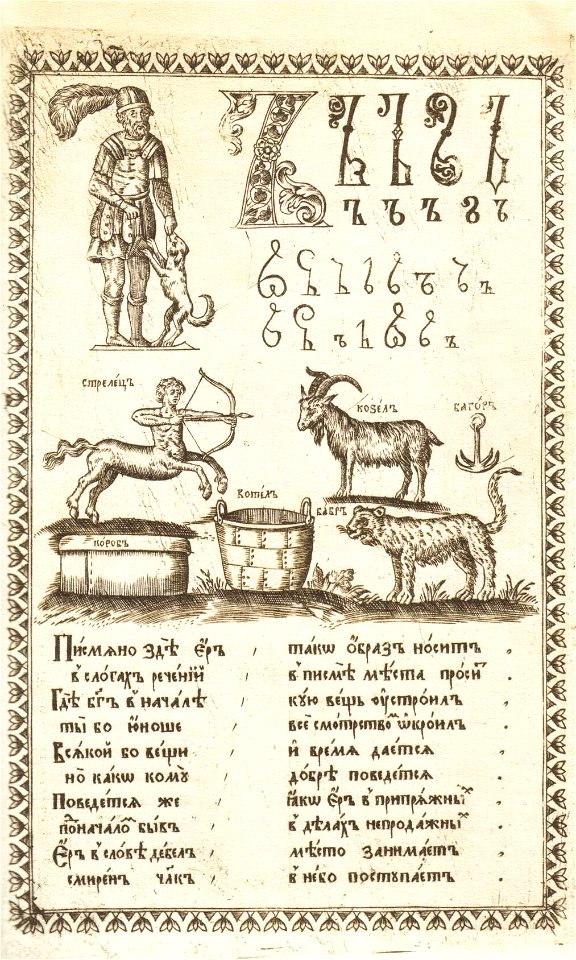 ъ ъ ъ ъ ъ
стреле́цъ
козе́лъ
баго́ръ
коте́лъ
бабръ
коробъ
Пи́смѧно здѣ̀ е҆́ръ
та́кѡ ѻ҆́бразъ но́ситъ
в̾ сло́гахъ рече́нїй
в̾ писмѣ̀ мѣ́ста про́ситъ
Гдѣ̀ бг҃ъ в̾ нача́лѣ
ку́ю ве́щь ᲂу҆стро́илъ
ты̀ бо ю҆́ноше
всѐ смотрство ѿкро́илъ
Всѧ́кой бо ве́щи
и҆ вре́мѧ дае́тсѧ
но̀ ка́кѡ кому̀
до́брѣ поведе́тсѧ
Поведе́тсѧ же
ꙗ҆́кѡ е҆́ръ в̾ припрѧжны́хъ
поначалом бы́въ
в̾ дѣ́лахъ непрода́жныхъ
Е҆́ръ в̾ сло́вѣ дебе́лъ
мѣ́сто занима́етъ
смире́нъ чл҃къ
в̾ не́бо поступа́етъ